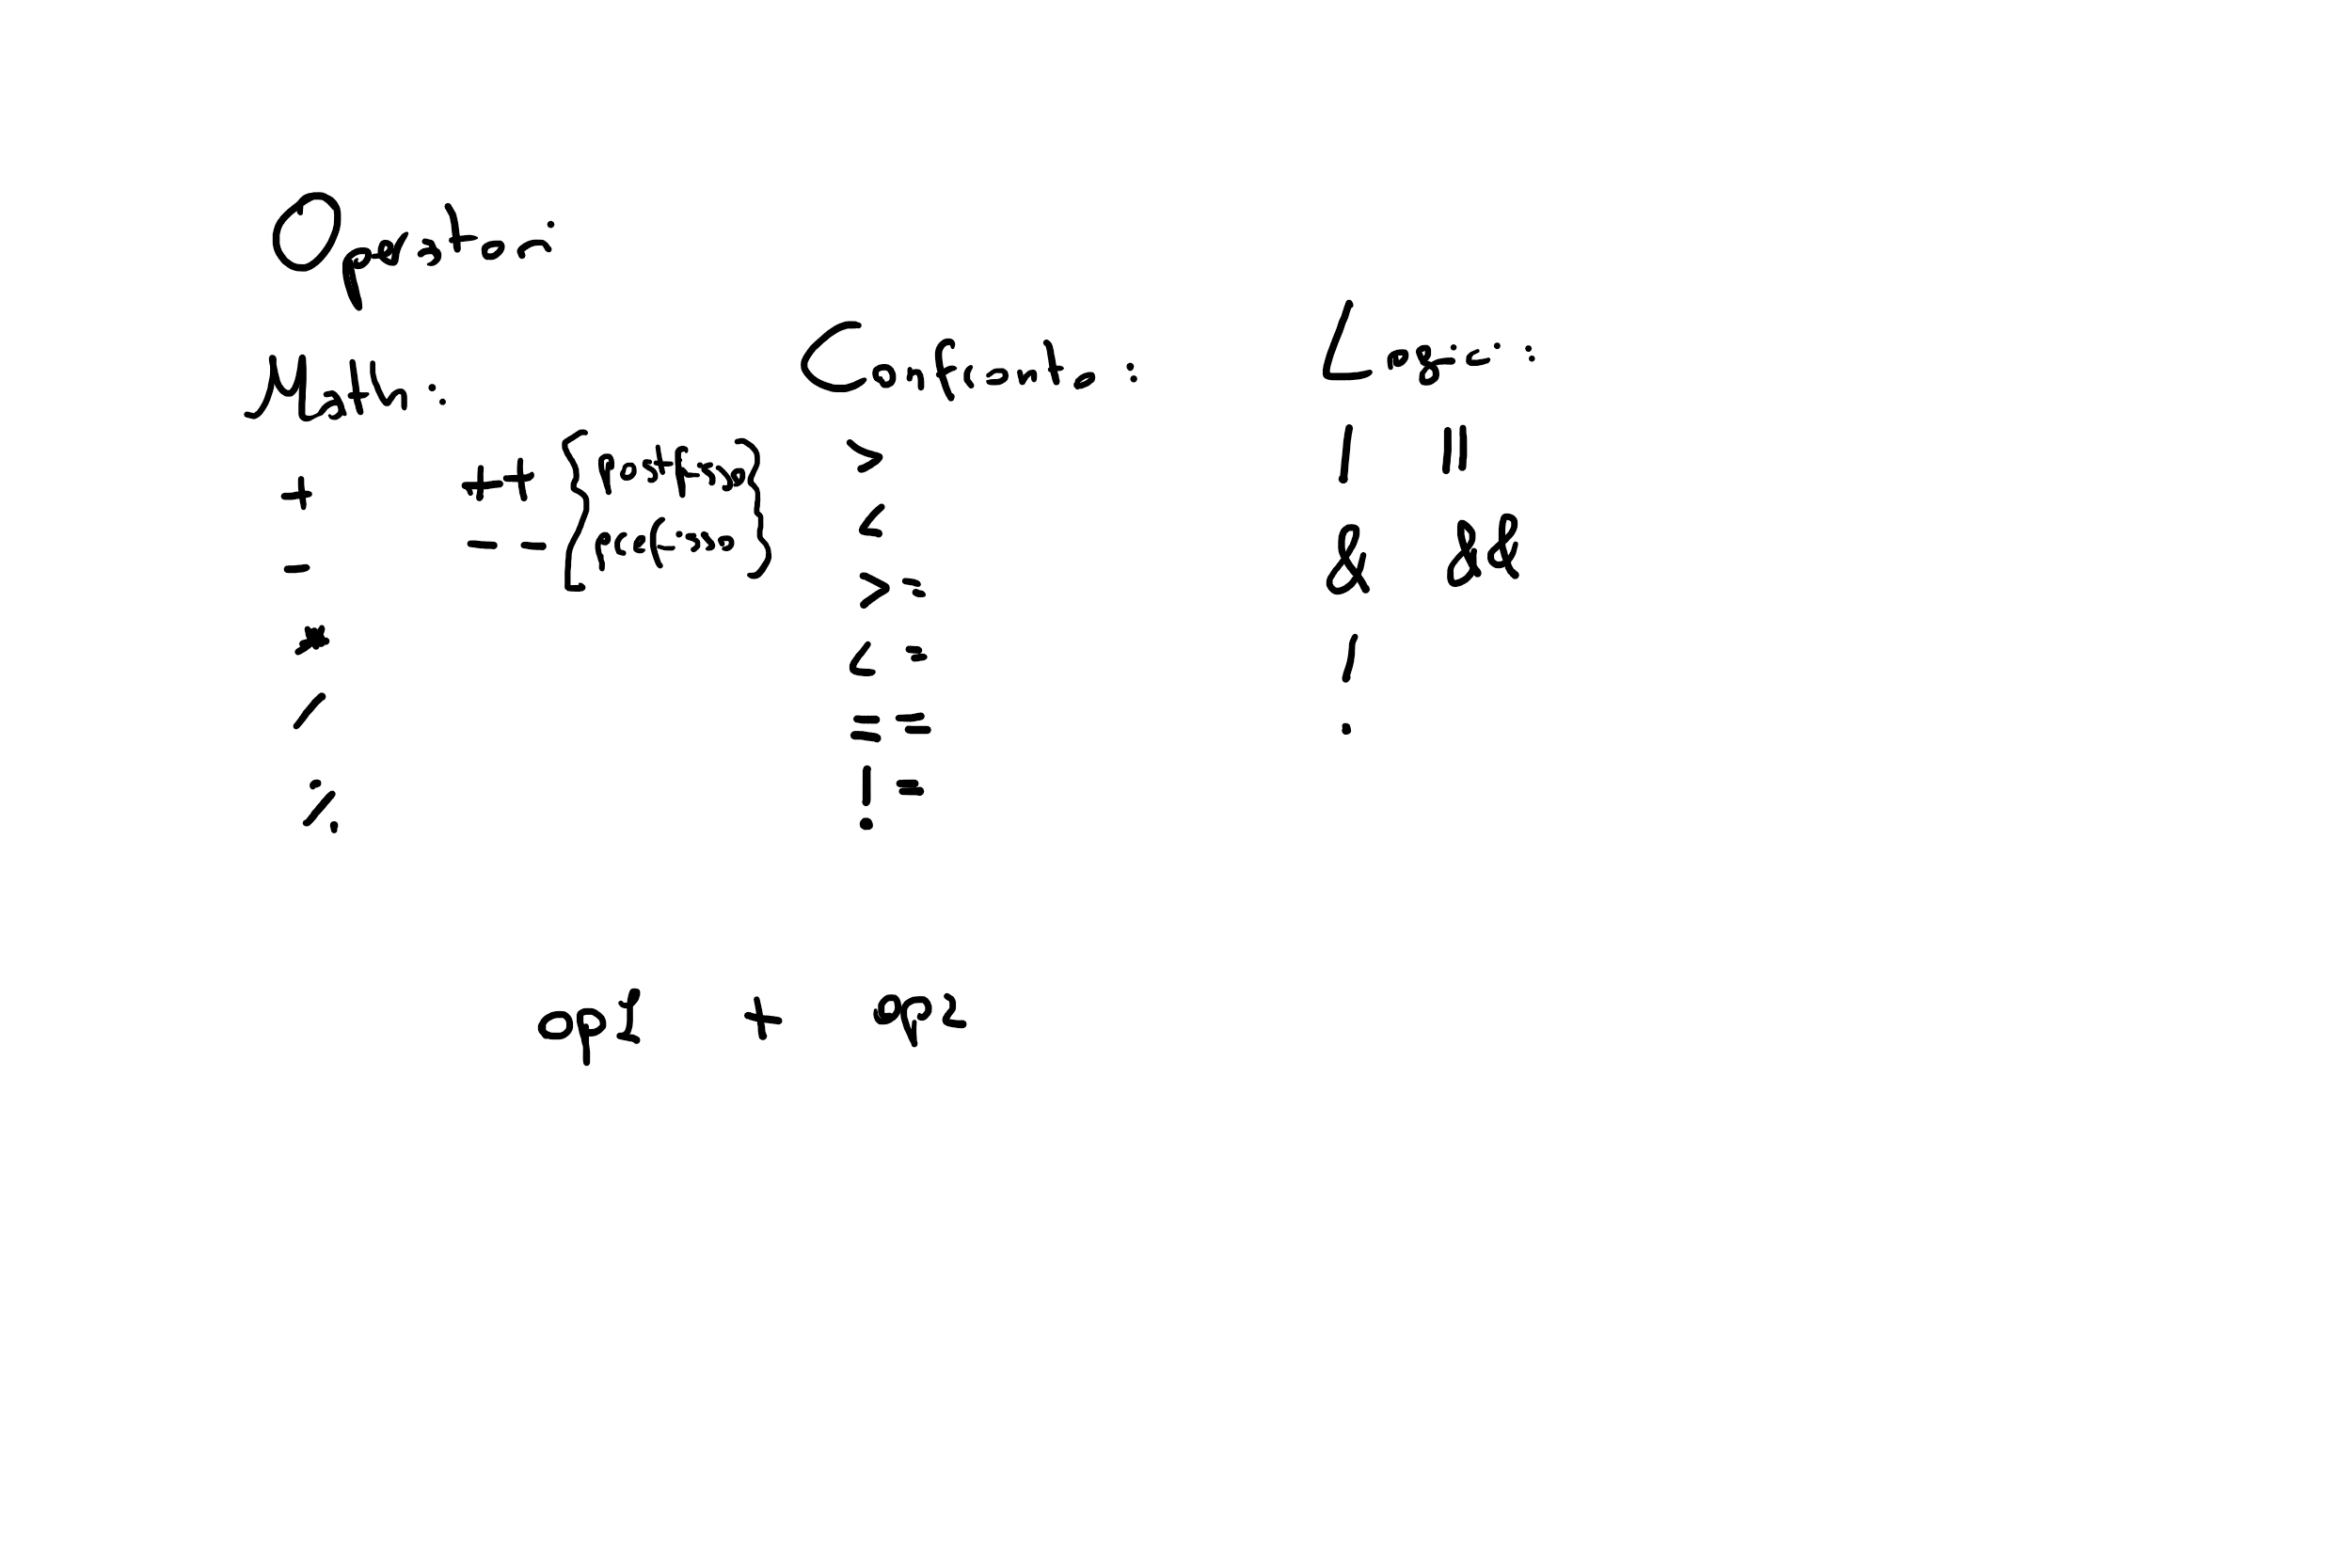 Operatori
Math:
+
-
*
/
%
++
--
postfisso
prefisso
Confronto:
>
<
>=
<=
==
!=
Logici:
| ||
& &&
!
op1 + op2